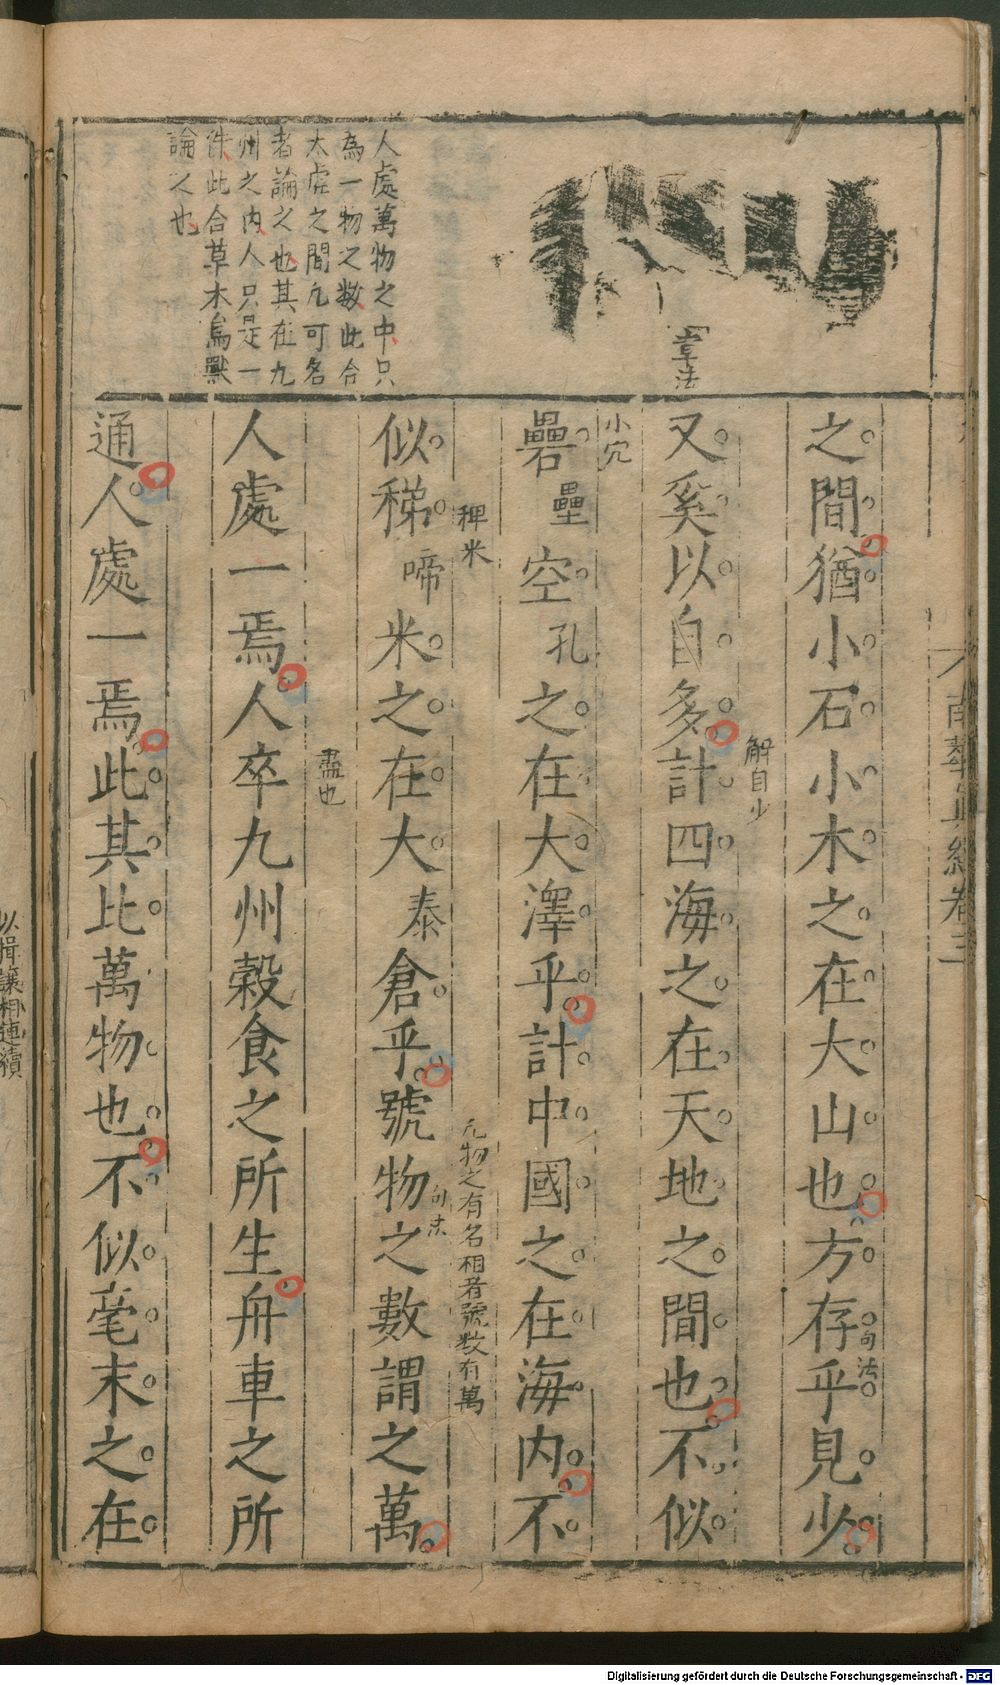 南華真經卷三
章法
之間猶小石小木之在大山也方存乎見少
句法
解自少
又奚以自多計四海之在天地之間也不似
小穴
礨壘空孔之在大澤乎計中國之在海内不
稗米
凢物之有名相者號数有萬
似稊啼米之在大泰倉乎號物之數謂之萬
句法
盡也
人處一焉人卒九州穀食之所生舟車之所
通人處一焉此其比萬物也不似毫末之在
人處萬物之中只
為一物之数此合
太虛之間凢可名
者論之也其在九
州之内人只是一
件此合草木鳥獸
論之也
以揖讓相連續
Digitalisierung gefördert durch die Deutsche Forschungsgemeinschaft - DFG